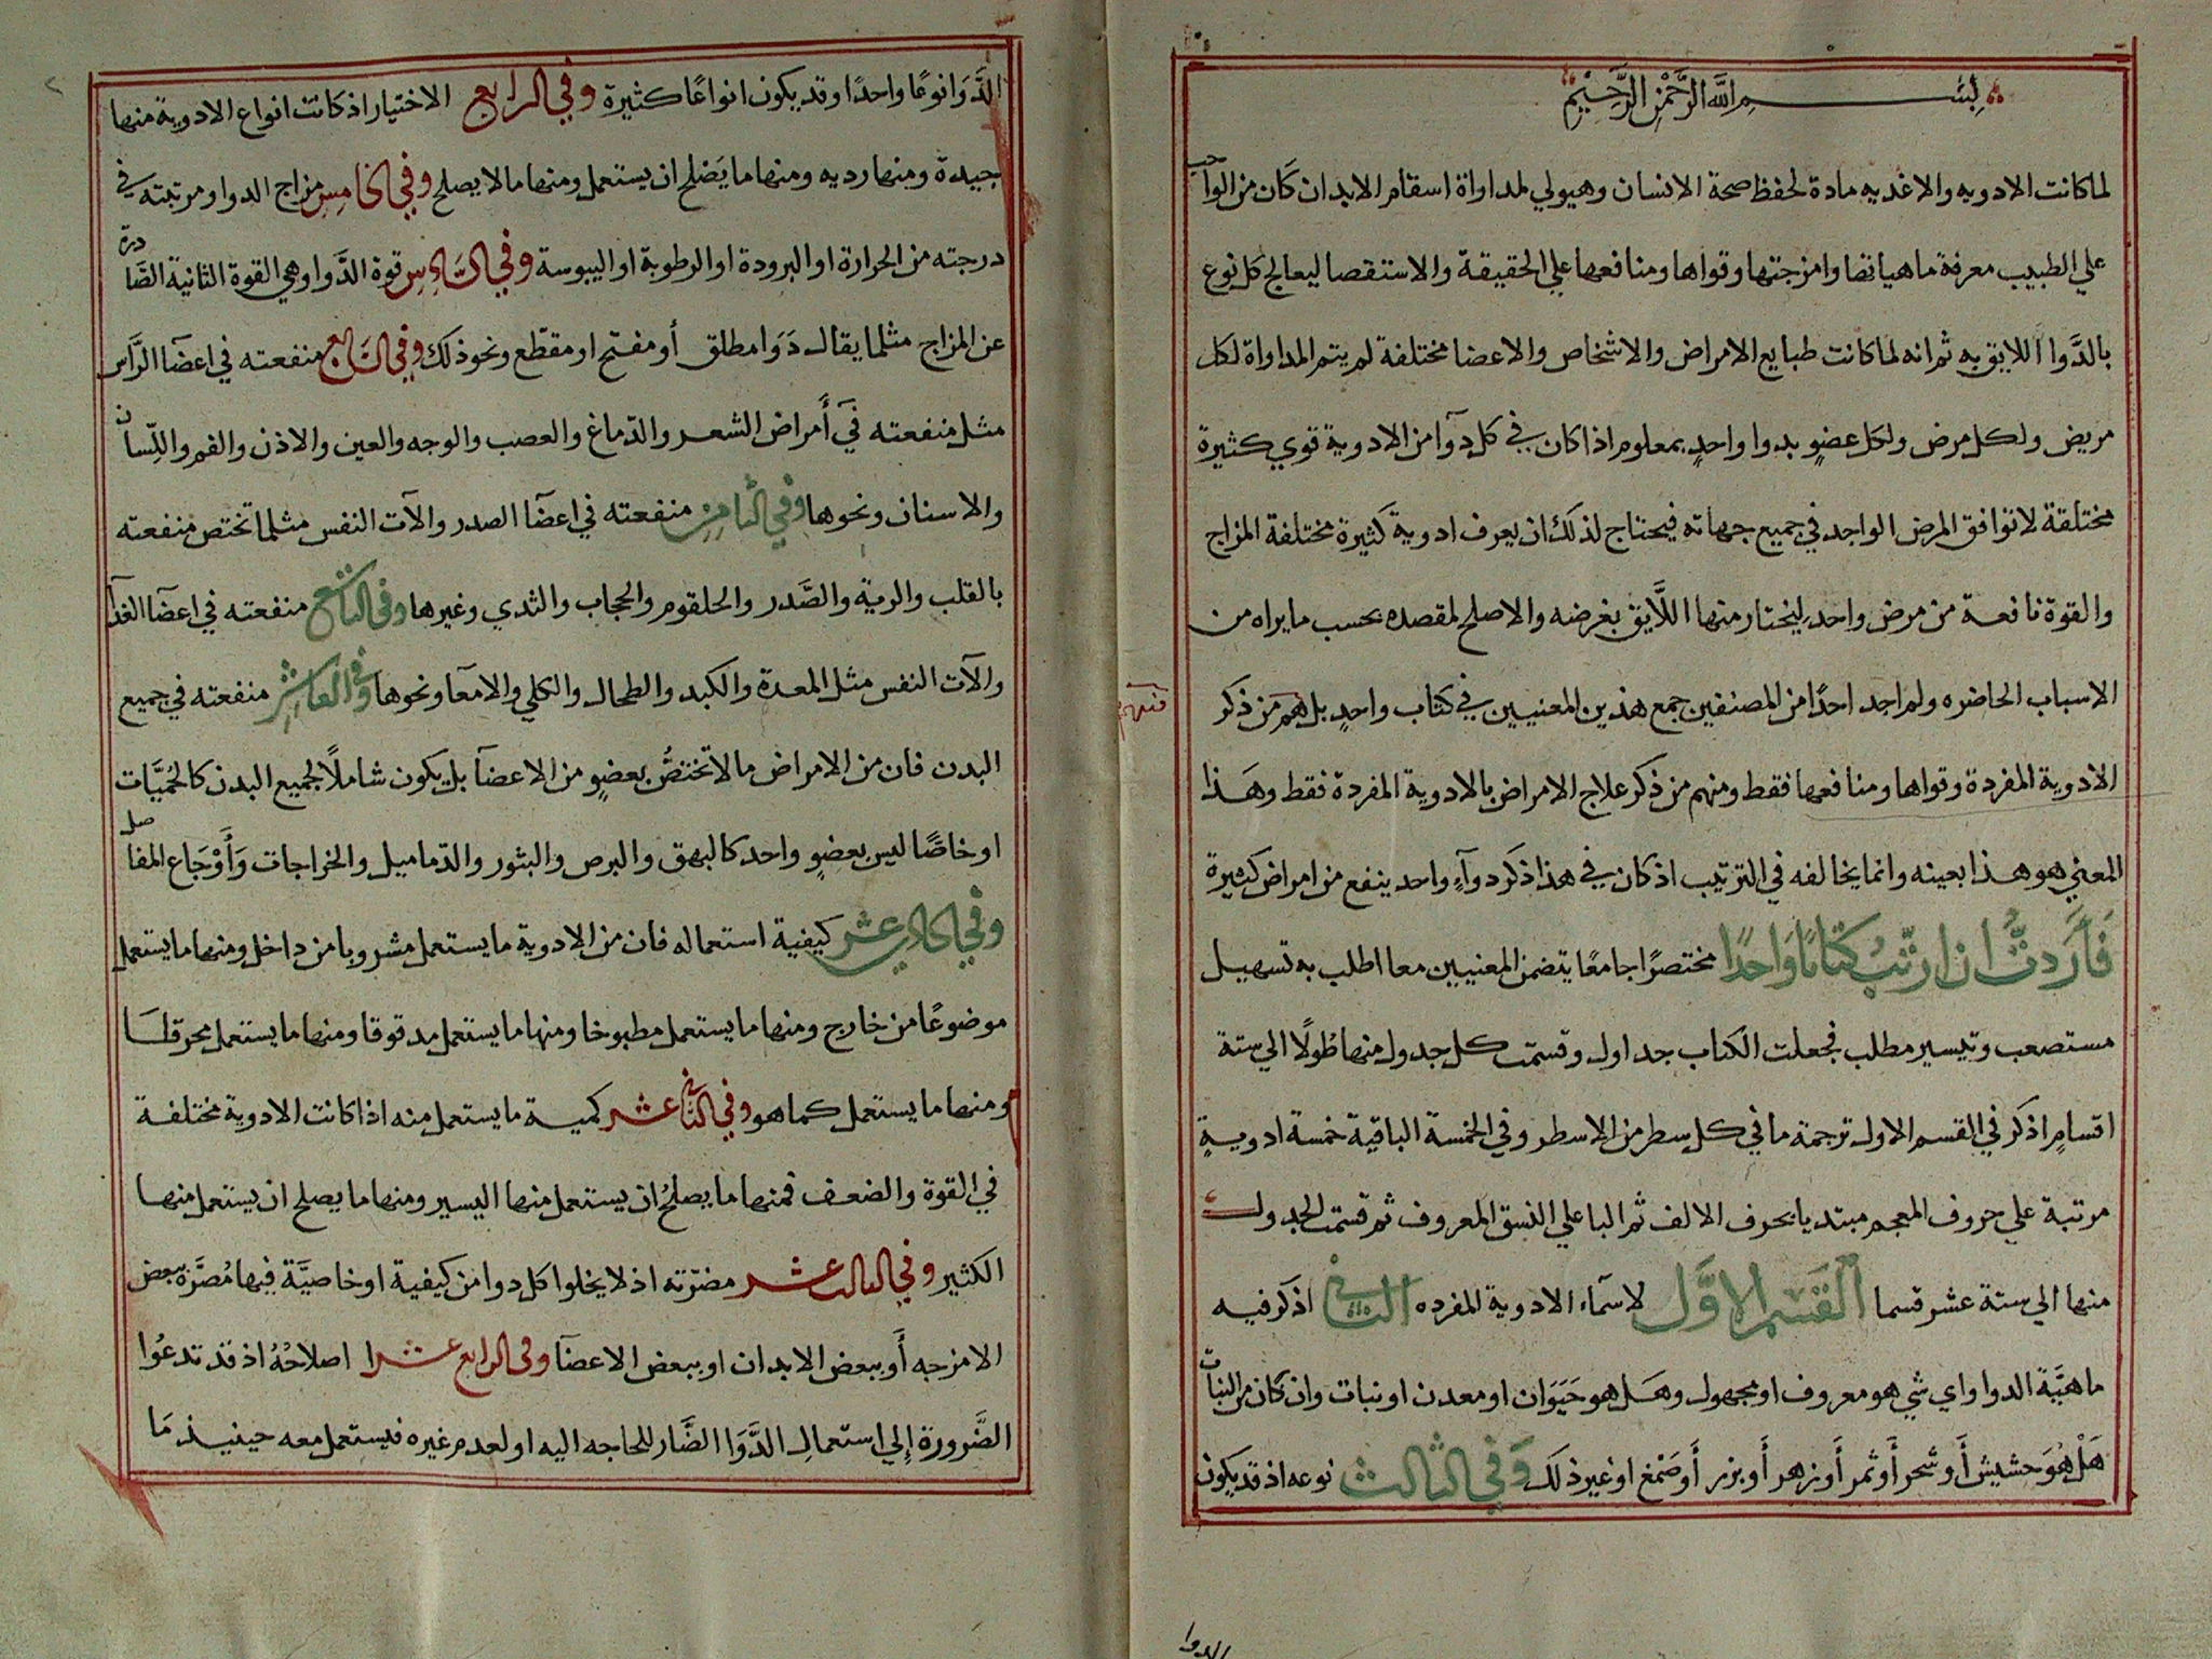 بسم الله الرحمن الرحيم
لما كانت الادويه والاغديه مادة لحفظ صحة الانسان وهيولي لمداواة اسقام الابدان كان من الواجب
علي الطبيب معرفة ماهياتها وامزجتها وقواها ومنافعها علي الحقيقة والاستقصا ليعالج كل نوع
بالدَّوا اللايق به ثم انه لما كانت طبايع الامراض والاشخاص والاعضا مختلفة لم يتم المداواة لكل
مريض ولكل مرض ولكل عضوٍ بدوا واحدٍ بمعلوم اذا كان في كل دوآ من الادوية قوي كثيرة
مختلقة لا توافق المرض الواحد في جميع جهاته فيحتاج لذلك ان يعرف ادوية كثيرة مختلفة المزاج
والقوة نافعة من مرض واحد ليختار منها اللَّايق بغرضه والاصلح لمقصده بحسب ما يراه من
الاسباب الحاضره ولم اجد احدًا من المصنفين جمع هذين المعنيين في كتاب واحدٍ بل هم من ذكر
فمنهم
الادوية المفردة وقواها ومنافعها فقط ومنهم من ذكر علاج الامراض بالادوية المفردة فقط وهَذا
المعني هو هذا بعينه وانما يخالفه في الترتيب اذ كان في هذا ذكر دوآءٍ واحد ينفع من امراض كثيرة
فَأَرَدتُّ ان ارتّبُ كتابًا وَاحدًا مختصرًا جامعًا يتضمن المعنيين معا اطلب به تسهيل
مستصعب وتيسير مطلب فجعلت الكتاب جداول وقسمت كل جدول منها طُولًا الي ستة
اقسامٍ اذكر في القسم الاول ترجمة ما في كل سطر من الاسطر وفي الخمسة الباقية خمسة ادويةٍ
مرتبة علي حروف المعجم مبتديا بحرف الالف ثم البا علي النسق المعروف ثم قسمت الجدول
منها الي ستة عشر قسما القَسم الاوَّل لاسمآء الادوية المفرده الثاني اذكر فيه
ماهيَّة الدوا واي شي هو معروف او مجهول وهَل هو حَيَوَان او معدن او نبات وان كان من النبات
هَلْ هُوَ حشيش أَو شجر أَو ثمر أَو زهر أَو بزر أَو صَمْغ او غير ذلَك وَفي الثالث نوعه اذ قد يكون
الدوا
الدَّوَا نوعًا واحدًا وقد يكون انواعًا كثيرة وفي الرابع الاختيار اذ كانت انواع الادوية منها
جيدة ومنها رديه ومنها ما يَصْلح ان يستعمل ومنها ما لا يصلح وفي الخامِس مزاج الدوا ومرتبته في
درجته من الحرارة او البرودة او الرطوبة او اليبوسة وفي السَّادِس قوة الدَّوا وهي القوة الثانية الصَّادرة
عن المزاج مثلما يقال دَوَا مطلق أو مفتح او مقطّع ونحو ذلك وفي السَّابع منفعته في اعضآ الرَّأس
مثل منفعته في أمراض الشعر والدّماغ والعصب والوجه والعين والاذن والفم واللِّسان
والاسنان ونحوها وفي الثامن منفعته في اعضآ الصدر والآت النفس مثلما تختص منفعته
بالقلب والرية والصَّدر والحلقوم والحجاب والثدي وغيرها وفي التاسع منفعته في اعضآ الغذآ
والآت النفس مثل المعدة والكبد والطحال والكلي والامعا ونحوها وفي العاشر منفعته في جميع
البدن فان من الامراض ما لا تختصُّ بعضوٍ من الاعضآ بل يكون شاملًا لجميع البدن كالحُميَّات
او خاصًّا ليس بعضوٍ واحد كالبهق والبرص والبثور والدّماميل والخراجات وَأَوْجَاع المفاصل
وفي الحادي عشر كيفية استعماله فان من الادوية ما يستعمل مشروبا من داخل ومنها ما يستعمل
موضوعًا من خارج ومنها ما يستعمل مطبوخا ومنها ما يستعمل مدقوقا ومنها ما يستعمل محرقا
ومنها ما يستعمل كما هو وفي الثاني عشر كمية ما يستعمل منه اذا كانت الادوية مختلفة
في القوة والضعف فمنها ما يصلحُ ان يستعمل منها اليسير ومنها ما يصلح ان يستعمل منها
الكثير وفي الثالث عشر مضرّته اذ لا يخلوا كل دوا من كيفية او خاصيَّة فيها مُضرَّة ببعض
الامزجه أَو ببعض الابدان او ببعض الاعضآ وفي الرابع عشر اصلاحُهُ اذ قد تدعُوا
الضَّرورة إلي استعمالِ الدَّوَا الضَّار للحاجه اليه او لعدم غيره فيستعمل معه حينيذ مَا